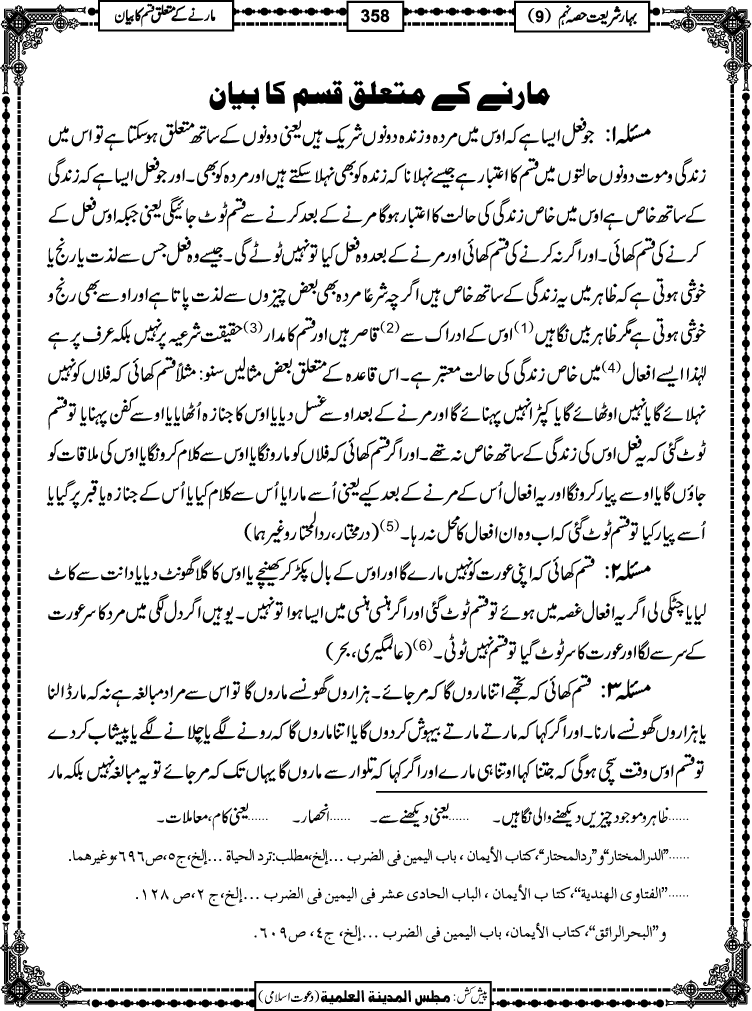 بہارِ شریعت حصہ نہم (9)
358
مارنے کے متعلق قسم کا بیان
مارنے کے متعلق قسم کا بیان
مسئلہ ۱: جو فعل ایسا ہے کہ اوس میں مردہ و زندہ دونوں شریک ہیں یعنی دونوں کے ساتھ متعلق ہوسکتا ہے تو اس میں
زندگی و موت دونوں حالتوں میں قسم کا اعتبار ہے جیسے نہلانا کہ زندہ کو بھی نہلا سکتے ہیں اور مردہ کو بھی۔ اور جو فعل ایسا ہے کہ زندگی
کے ساتھ خاص ہے اوس میں خاص زندگی کی حالت کا اعتبار ہوگا مرنے کے بعد کرنے سے قسم ٹوٹ جائیگی یعنی جبکہ اوس فعل کے
کرنے کی قسم کھائی۔ اور اگر نہ کرنے کی قسم کھائی اور مرنے کے بعد وہ فعل کیا تو نہیں ٹوٹے گی۔ جیسے وہ فعل جس سے لذت یا رنج یا
خوشی ہوتی ہے کہ ظاہر میں یہ زندگی کے ساتھ خاص ہیں اگرچہ شرعاً مردہ بھی بعض چیزوں سے لذت پاتا ہے اور اوسے بھی رنج و
خوشی ہوتی ہے مگر ظاہر بیں نگاہیں (1) اوس کے ادراک سے (2) قاصر ہیں اور قسم کا مدار (3) حقیقت شرعیہ پر نہیں بلکہ عرف پر ہے
لہٰذا ایسے افعال (4) میں خاص زندگی کی حالت معتبر ہے۔ اس قاعدہ کے متعلق بعض مثالیں سنو: مثلاً قسم کھائی کہ فلاں کو نہیں
نہلائے گا یا نہیں اوٹھائے گا یا کپڑا نہیں پہنائے گا اور مرنے کے بعد اوسے غسل دیا یا اوس کا جنازہ اُٹھایا یا اوسے کفن پہنایا تو قسم
ٹوٹ گئی کہ یہ فعل اوس کی زندگی کے ساتھ خاص نہ تھے۔ اور اگر قسم کھائی کہ فلاں کو مارونگا یا اوس سے کلام کرونگا یا اوس کی ملاقات کو
جاؤں گا یا اوسے پیار کرونگا اور یہ افعال اُس کے مرنے کے بعد کیے یعنی اُسے مارا یا اُس سے کلام کیا یا اُس کے جنازہ یا قبر پر گیا یا
اُسے پیار کیا تو قسم ٹوٹ گئی کہ اب وہ ان افعال کا محل نہ رہا۔ (5) (درمختار، ردالمحتار وغیرہما)
مسئلہ ۲: قسم کھائی کہ اپنی عورت کو نہیں مارے گا اور اوس کے بال پکڑ کر کھینچے یا اوس کا گلا گھونٹ دیا یا دانت سے کاٹ
لیا یا چٹکی لی اگر یہ افعال غصہ میں ہوئے تو قسم ٹوٹ گئی اور اگر ہنسی ہنسی میں ایسا ہوا تو نہیں۔ یوہیں اگر دل لگی میں مرد کا سر عورت
کے سر سے لگا اور عورت کا سر ٹوٹ گیا تو قسم نہیں ٹوٹی۔ (6) (عالمگیری، بحر)
مسئلہ ۳: قسم کھائی کہ تجھے اتنا ماروں گا کہ مرجائے۔ ہزاروں گھونسے ماروں گا تو اس سے مراد مبالغہ ہے نہ کہ مار ڈالنا
یا ہزاروں گھونسے مارنا۔ اور اگر کہا کہ مارتے مارتے بیہوش کردوں گا یا اتنا ماروں گا کہ رونے لگے یا چلانے لگے یا پیشاب کردے
تو قسم اوس وقت سچی ہوگی کہ جتنا کہا اوتنا ہی مارے اور اگر کہا کہ تلوار سے ماروں گا یہاں تک کہ مرجائے تو یہ مبالغہ نہیں بلکہ مار
......ظاہر و موجود چیزیں دیکھنے والی نگاہیں۔ ......یعنی دیکھنے سے۔ ......انحصار۔ ......یعنی کام، معاملات۔
......”الدرالمختار“و”ردالمحتار“،کتاب الأیمان ، باب الیمین فی الضرب ...إلخ،مطلب:ترد الحیاة ...إلخ،ج۵،ص۶۹۶،وغیرھما.
......”الفتاوی الھندیة“،کتا ب الأیمان ، الباب الحادی عشر فی الیمین فی الضرب ...إلخ،ج ۲،ص ۱۲۸.
و”البحرالرائق“،کتاب الأیمان، باب الیمین فی الضرب ...إلخ، ج٤، ص۶۰۹.
پیش کش: مجلس المدینة العلمیة (دعوتِ اسلامی)